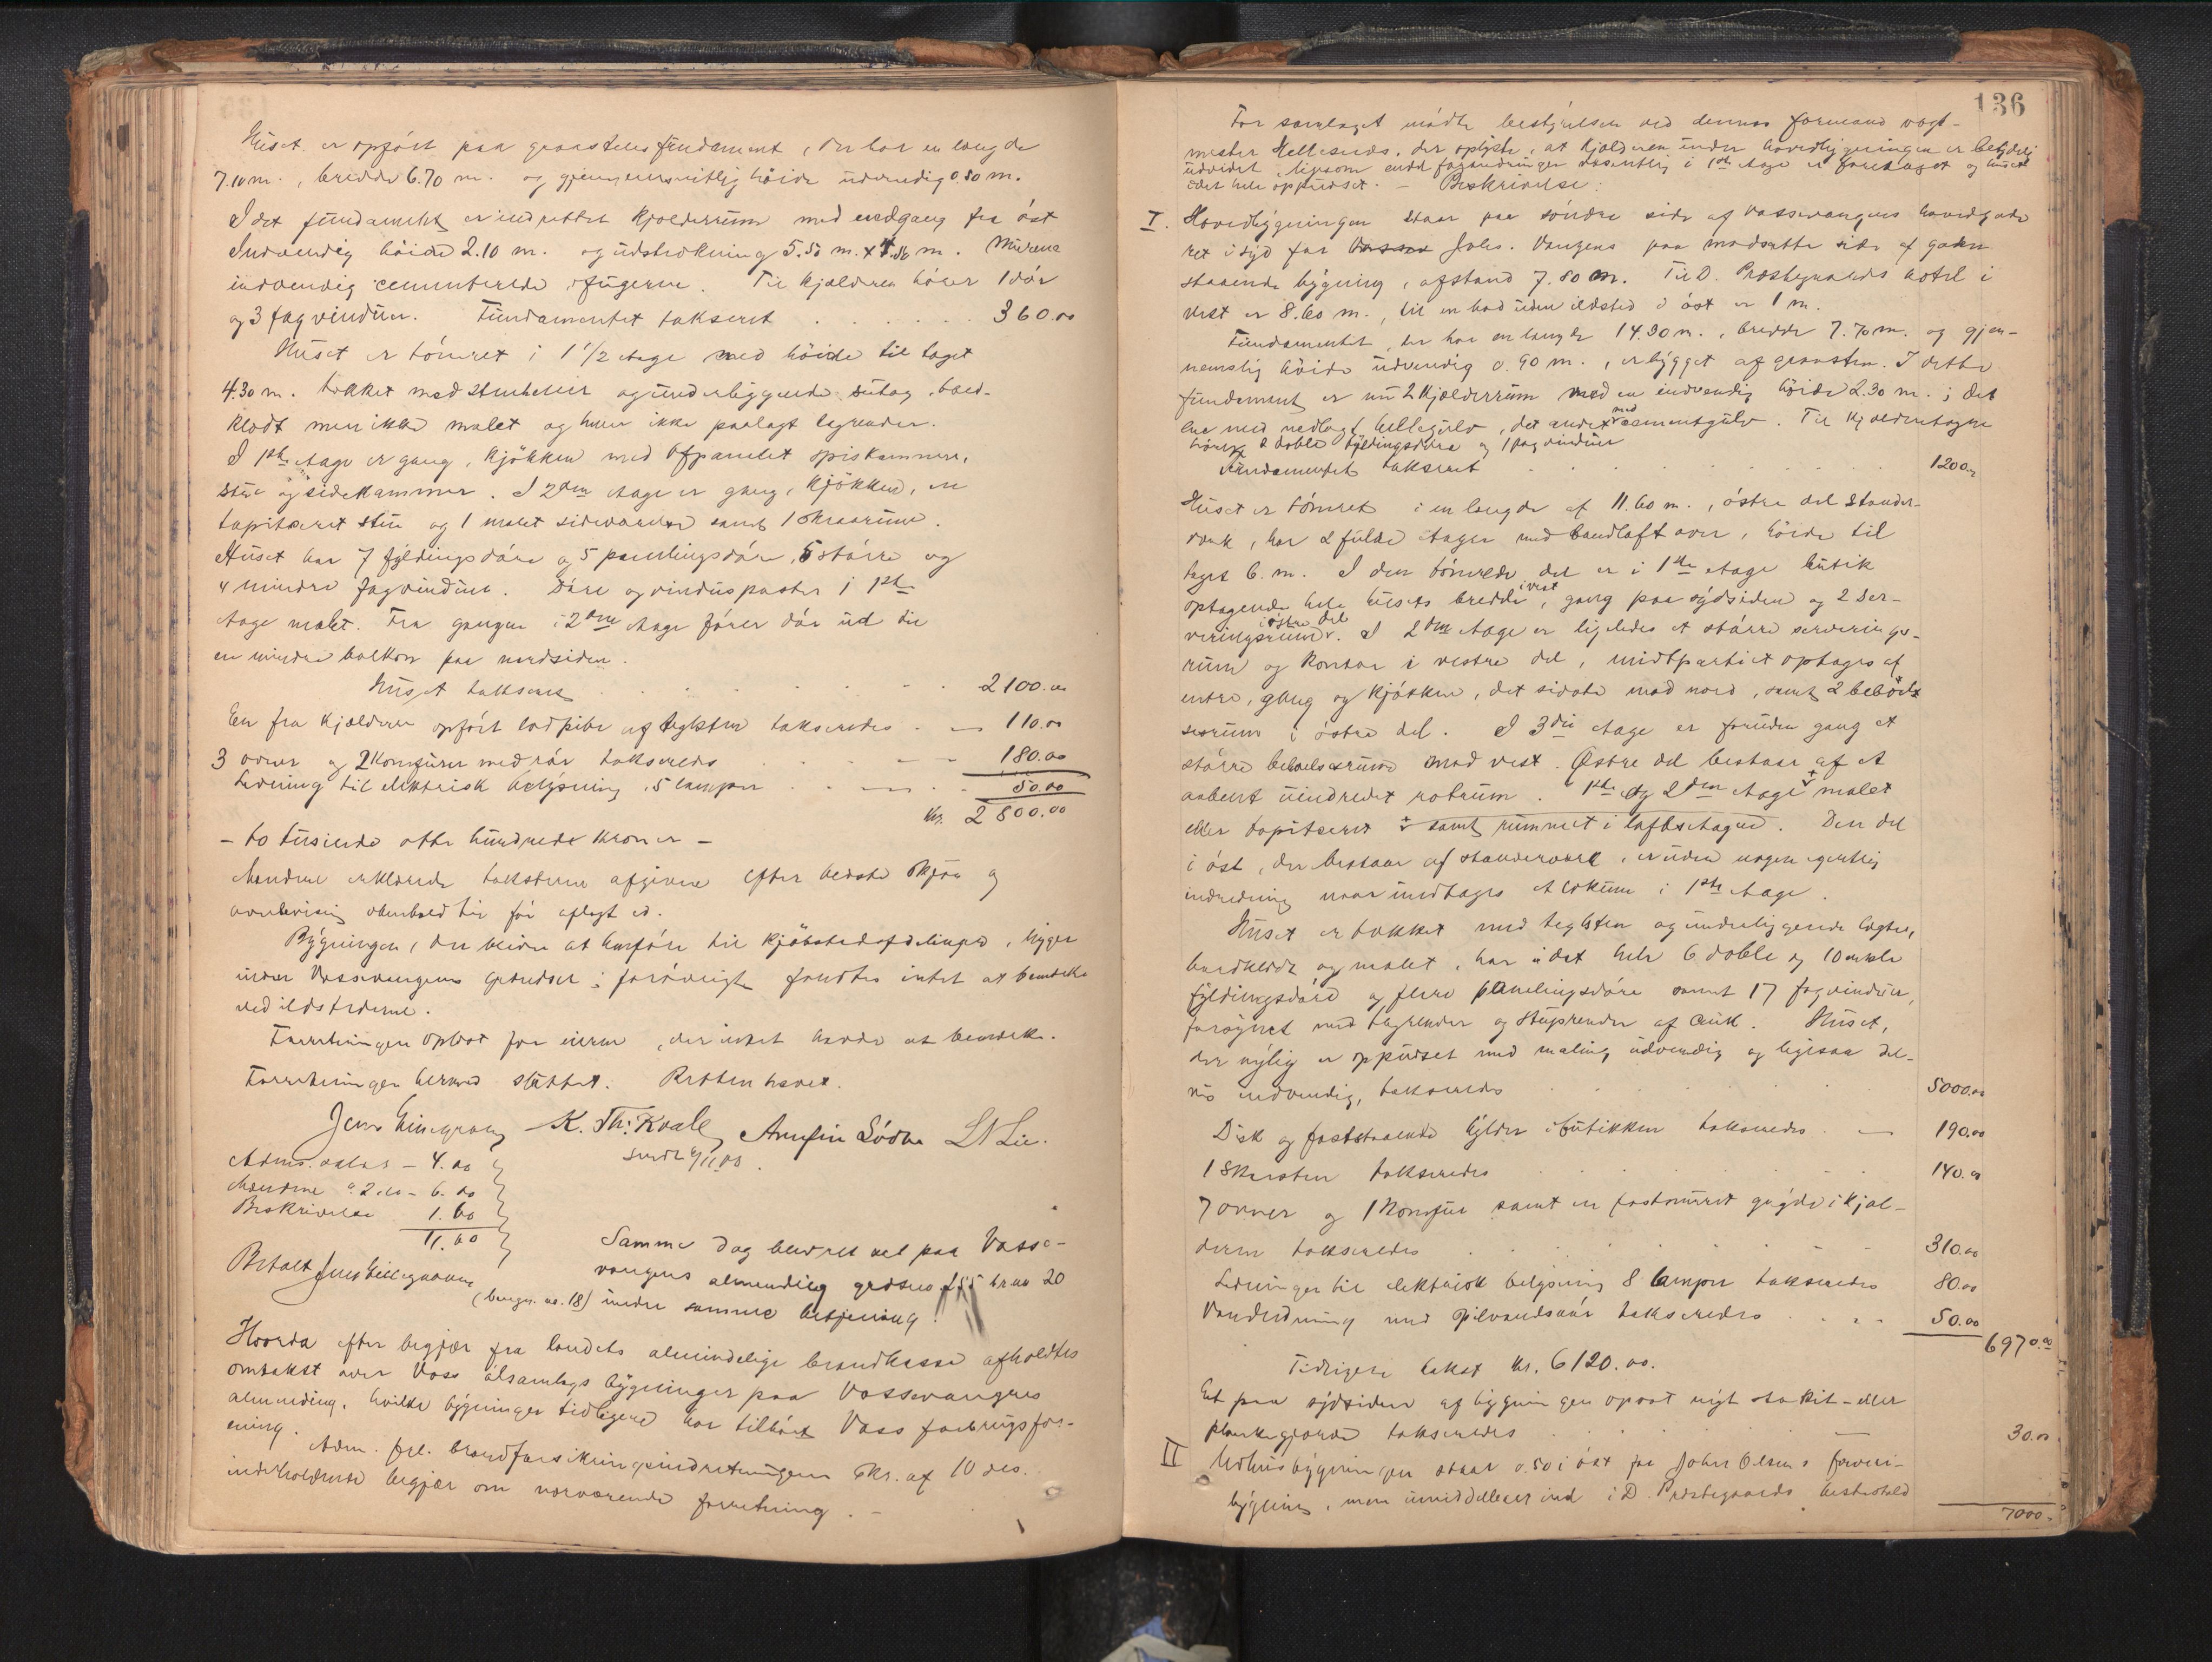 Huset er opført paa graastensfundament, der har en længde
7.10 m., bredde 6.70 m. og gjennemsnitlig høide udvendig 0.80 m.
I det fundamentet er indrettet kjælderrum med nedgang fra øst
Indvendig høide 2.10 m. og udstrækning 5.50 m. x m. Murene
indvendig cementerede i fugerne. Til kjælderen hører 1 dør
og 3 fag vinduer. Fundamentet takseret 360.00
Huset er tømret i 1 1/2 etage med høide til taget
4.30 m. tækket med stenheller og underliggende sutag, bord-
klædt men ikke malet og huen ikke paalagt tagrender.
I 1ste etage er gang, kjøkken med afpanelet spiskammer,
stue og sidekammer. I 2den etage er gang, kjøkken, en
tapitseret stue og 1 malet sideværelse samt 1 skraarum.
Huset har 7 fyldingsdøre og 5 panelingsdøre, 5 større og
4 mindre fagvinduer. Døre og vindusposter i 1ste
etage malet. Fra gangen i 2den etage fører dør ud til
en mindre balkon paa nordsiden.
Huset takseret 2100.00
En fra kjælderen opført lodpibe af teglsten takseredes 110.00
3 ovner og 2 komfurer med rør takseredes 180.00
Ledning til elektrisk belysning, 5 lamper 50.00
kr. 2800.00
- to tusinde otte hundrede kroner -
Mændene erklærede taksterne afgivne efter bedste skjøn og
overbevisning i henhold til før aflagt ed.
Bygningen, der bliver at henføre til kjøbstadafdelingen, ligger
inden Vossevangens grændser; forøvrigt fandtes intet at bemærke
ved ildstederne.
Forretningen oplæst for eieren, der intet havde at bemærke.
Forretningen hermed sluttet. Retten hævet.
Jens Gjukegran K. Th: Kvale Arnfin Lødve L N Lie.
sendt 9/11 00.
Adms. - 4.00
Mændene à 2.00 - 6.00
Beskrivelse 1.60
11.60
Betalt Jens
Samme dag blev ret sat paa Vosse-
vangens almending grdsno 55 brno 20
(bergs. no. 18) under samme betjening.
Hvorda efter begjær fra landets almindelige brandkasse afholdtes
omtakst over Voss ølsamlags bygninger paa Vossevangens
almending, hvilke bygninger tidligere har tilhørt Voss forbrugsfor-
ening.
Adm. frl. brandforsikringsindretningens skr. af 10 des.
indeholdende begjær om nærværende forretning. -
136
For samlaget mødte bestyrelsen ved dennes formand vagt-
mester Hellesnæs, der oplyste, at kjælderen under hovedbygningen er betydelig
udvidet, ligesom endel forandringer væsentlig i 1ste etage er foretaget og huset
i det hele oppudset. - Beskrivelse:
I. Hovedbygningen staar paa søndre side af Vossevangens hovedgade
ret i syd for Johs. Vangens paa modsatte side af gaden
staaende bygning, afstand 7.80 m. Til D. Præstegaards hotel i
vest er 8.60 m., til en bod uden ildsted i øst er 1 m.
Fundamentet, der har en længde 14.30 m., bredde 7.70 m. og gjen-
nemsnitlig høide udvendig 0.90 m., er bygget af graasten. I dette
fundament er nu 2 kjælderrum med en indvendig høide 2.30 m.; det
ene med nedlagt hellegulv, det andet med cementgulv. Til kjælderetagen
hører 2 doble fyldingsdøre og 1 fag vinduer
Fundamentet takseret 1200.00
Huset er tømret i en længde af 11.60 m., østre del stander-
værk, har 2 fulde etager med bandloft over, høide til
taget 6. m. I den tømrede del er i 1ste etage butik
optagende hele husets bredde i vest, gang paa sydsiden og 2 ser-
veringsrum i østre del. I 2den etage er ligeledes et større serverings-
rum og kontor i vestre del, midtpartiet optages af
entre, gang og kjøkken, det sidste mod nord, samt 2 beboel-
sesrum i østre del. I 3die etage er foruden gang et
større beboelsesrum mod vest. Østre del bestaar af et
aabent uindredet rotrum. 1ste og 2den etage malet
eller tapitseret samt rummet i loftsetagen. Den del
i øst, der bestaar af standerværk, er uden nogen egentlig
indredning naar undtages et lokum i 1ste etage.
Huset er tækket med teglsten og underliggende lægter,
bordklædt og malet, har i det hele 6 doble og 10 enkle
fyldingsdøre og flere panelingsdøre samt 17 fagvinduer,
forsynet med tagrender og stuprender af sink. Huset,
der nylig er oppudset med maling udvendig og ligesaa del-
vis indvendig, takseredes 5000.00
Disk og faststaaende hylder i butikken takseredes 190.00
1 Skorsten takseredes 140.00
7 ovner og 1 komfur samt en fastmuret gryde i kjæl-
deren takseredes 310.00
Ledninger til elektrisk belysning 8 lamper takseredes 80.00
Vandledning med spilvandsrør takseredes 50.00
6970.00
Tidligere takst kr. 6120.00.
Et paa sydsiden af bygningen opsat nyt stakit- eller
plankegjærde takseredes 30.00
II Udhusbygningen staar 0.50 i øst for Johs Olsens forreti-
bygning, men umiddelbart ind i D. Præstegaards hestestald
7000.